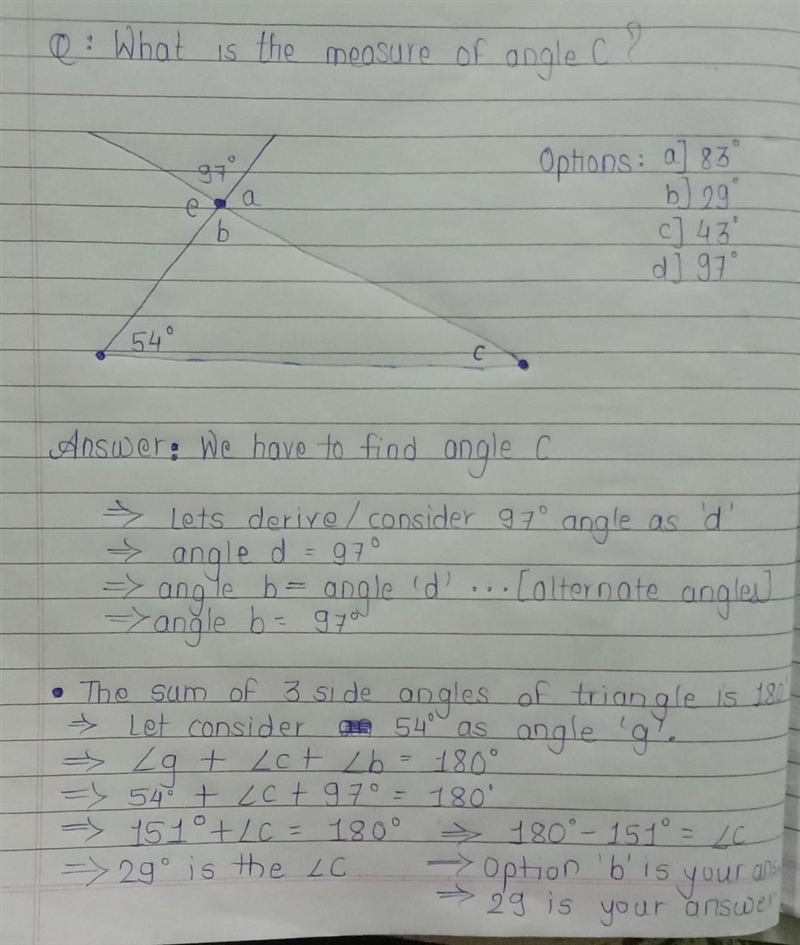 Q: What is the measure of angle C?
Options: a] 83°
b] 29°
c] 43°
d] 97°
97°
e a
b
54°
c
Answer: We have to find angle C
⇒ Lets derive/consider 97° angle as 'd'
⇒ angle d = 97°
⇒ angle b = angle 'd' ...[alternate angles]
⇒ angle b = 97°
• The sum of 3 side angles of triangle is 180
⇒ Let consider 54° as angle 'g'.
⇒ ∠g + ∠c + ∠b = 180°
⇒ 54° + ∠c + 97° = 180°
⇒ 151° + ∠c = 180° ⇒ 180° - 151° = ∠c
⇒ 29° is the ∠c → option 'b' is your ans
⇒ 29 is your answer